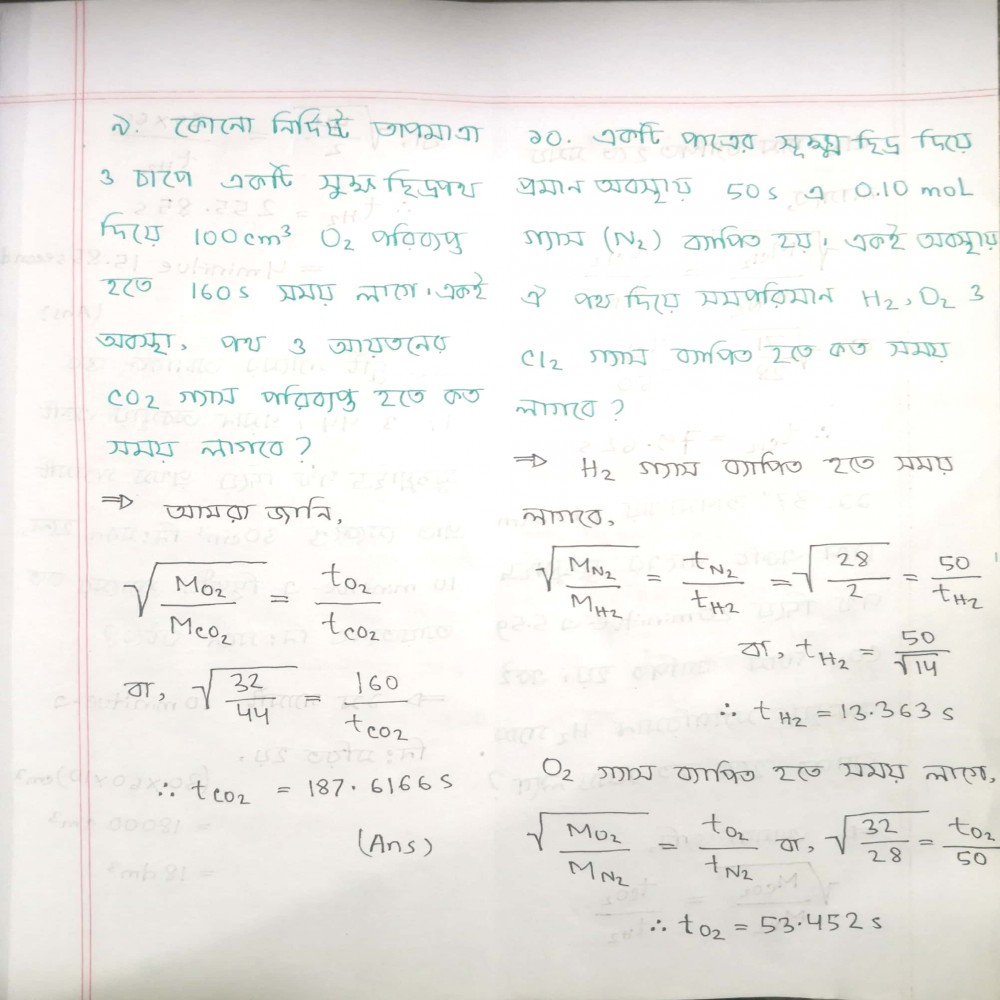 ৯. কোনো নির্দিষ্ট তাপমাত্রা
ও চাপে একটি সুক্ষ্ম ছিদ্রপথ
দিয়ে 100cm³ O₂ পরিব্যপ্ত
হতে 160s সময় লাগে। একই
অবস্থা, পথ ও আয়তনের
CO2 গ্যাস পরিব্যপ্ত হতে কত
সময় লাগবে?
⇒ আমরা জানি,
√(M_O₂/M_CO₂) = t_O₂/t_CO₂
বা, √(32/44) = 160/t_CO₂
∴ t_CO₂ = 187.6166s
(Ans)
১০. একটি পাত্রের সূক্ষ্ম ছিদ্র দিয়ে
প্রমান অবস্থায় 50s এ 0.10 moL
গ্যাস (N₂) ব্যাপিত হয়। একই অবস্থায়
ঐ পথ দিয়ে সমপরিমান H₂, O₂ ও
Cl₂ গ্যাস ব্যাপিত হতে কত সময়
লাগবে?
⇒ H₂ গ্যাস ব্যাপিত হতে সময়
লাগবে,
√(M_N₂/M_H₂) = t_N₂/t_H₂ = √(28/2) = 50/t_H₂
বা, t_H₂ = 50/√14
∴ t_H₂ = 13.363s
O₂ গ্যাস ব্যাপিত হতে সময় লাগে,
√(M_O₂/M_N₂) = t_O₂/t_N₂ বা, √(32/28) = t_O₂/50
∴ t_O₂ = 53.452s